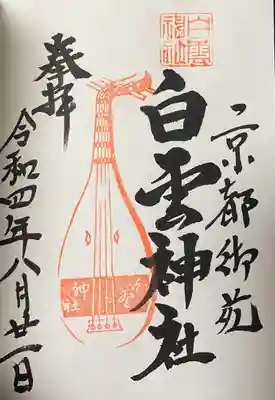 京都御苑
白雲神社
白雲神社
奉拝
神社
令和四年八月廿一日